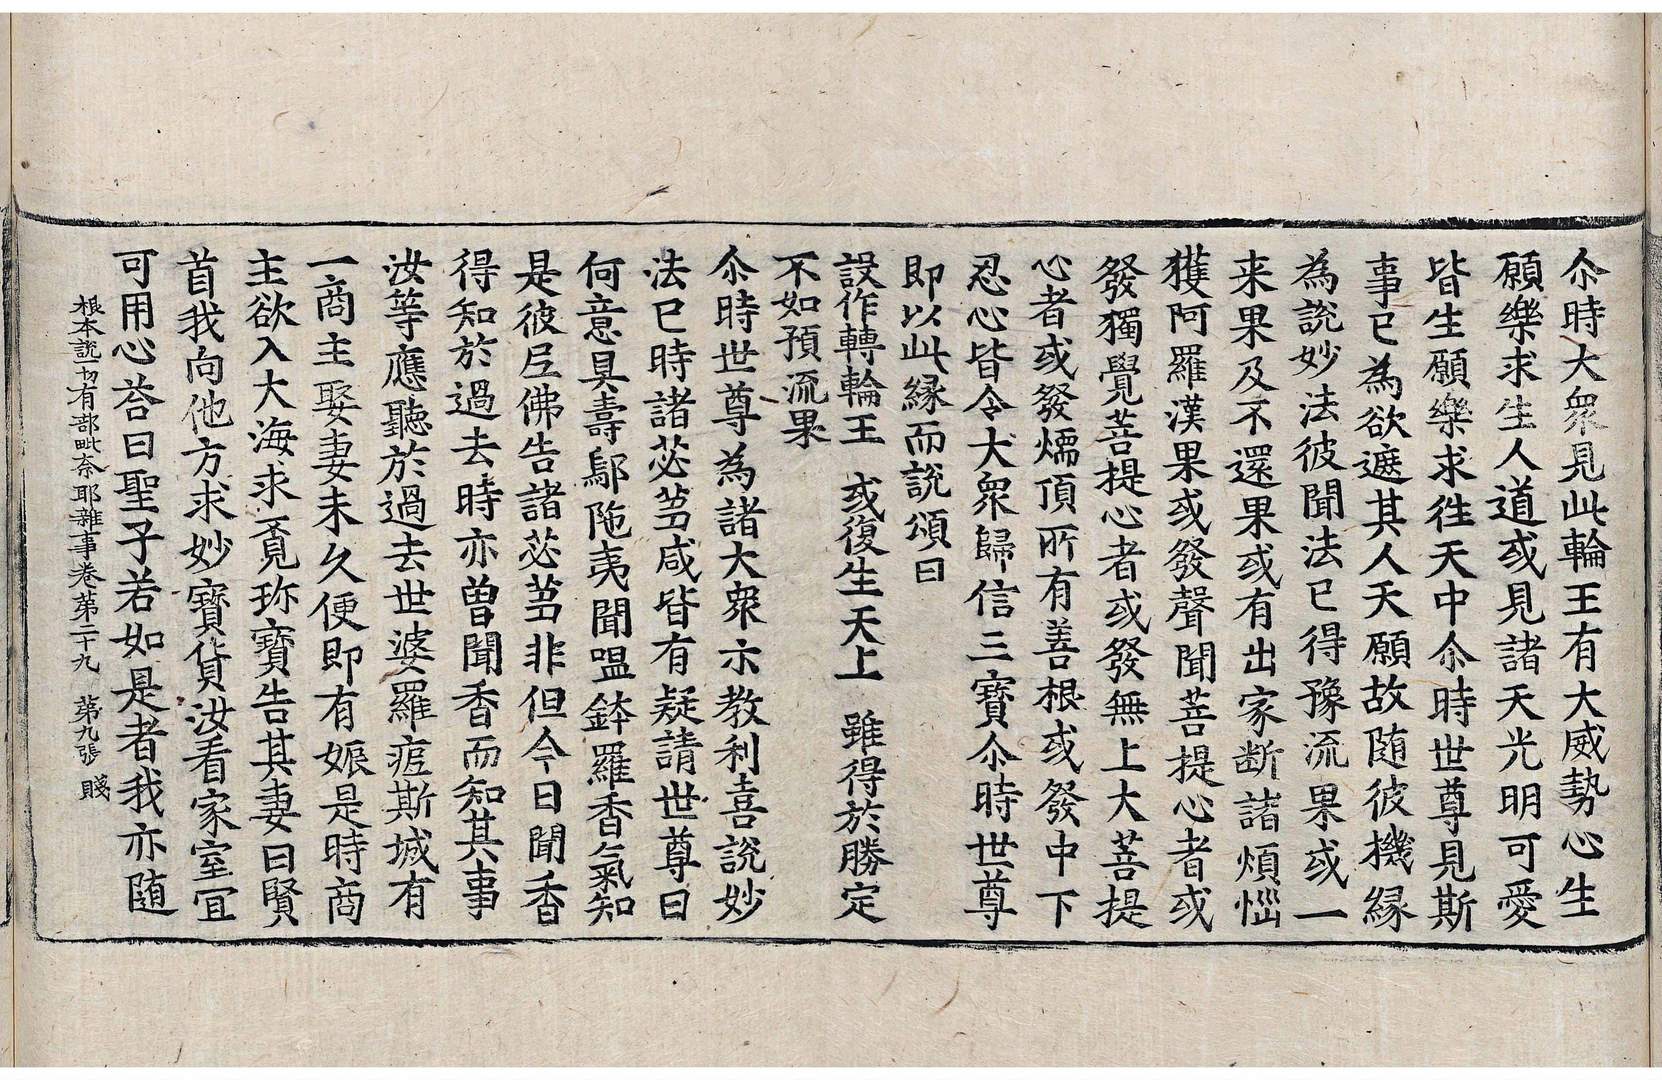 尒時大衆見此輪王有大威勢心生
願樂求生人道或見諸天光明可愛
皆生願樂求徃天中尒時世尊見斯
事已為欲遮其人天願故随彼機縁
為說妙法彼聞法已得豫流果或一
来果及不還果或有出家断諸煩惱
獲阿羅漢果或發聲聞菩提心者或
發獨覺菩提心者或發無上大菩提
心者或發煗頂所有善根或發中下
忍心皆令大衆歸信三寶尒時世尊
即以此縁而說頌曰
設作轉輪王　或復生天上　雖得於勝定
不如預流果
尒時世尊為諸大衆示教利喜說妙
法已時諸苾芻咸皆有疑請世尊曰
何意具壽鄔陁夷聞嗢鉢羅香氣知
是彼尼佛告諸苾芻非但今日聞香
得知於過去時亦曽聞香而知其事
汝等應聽於過去世婆羅痆斯城有
一商主娶妻未久便即有娠是時商
主欲入大海求覔珎寶告其妻曰賢
首我向他方求妙寶貨汝看家室冝
可用心荅曰聖子若如是者我亦随
根本說一切有部毗奈耶雜事卷第二十九　第九張　賤